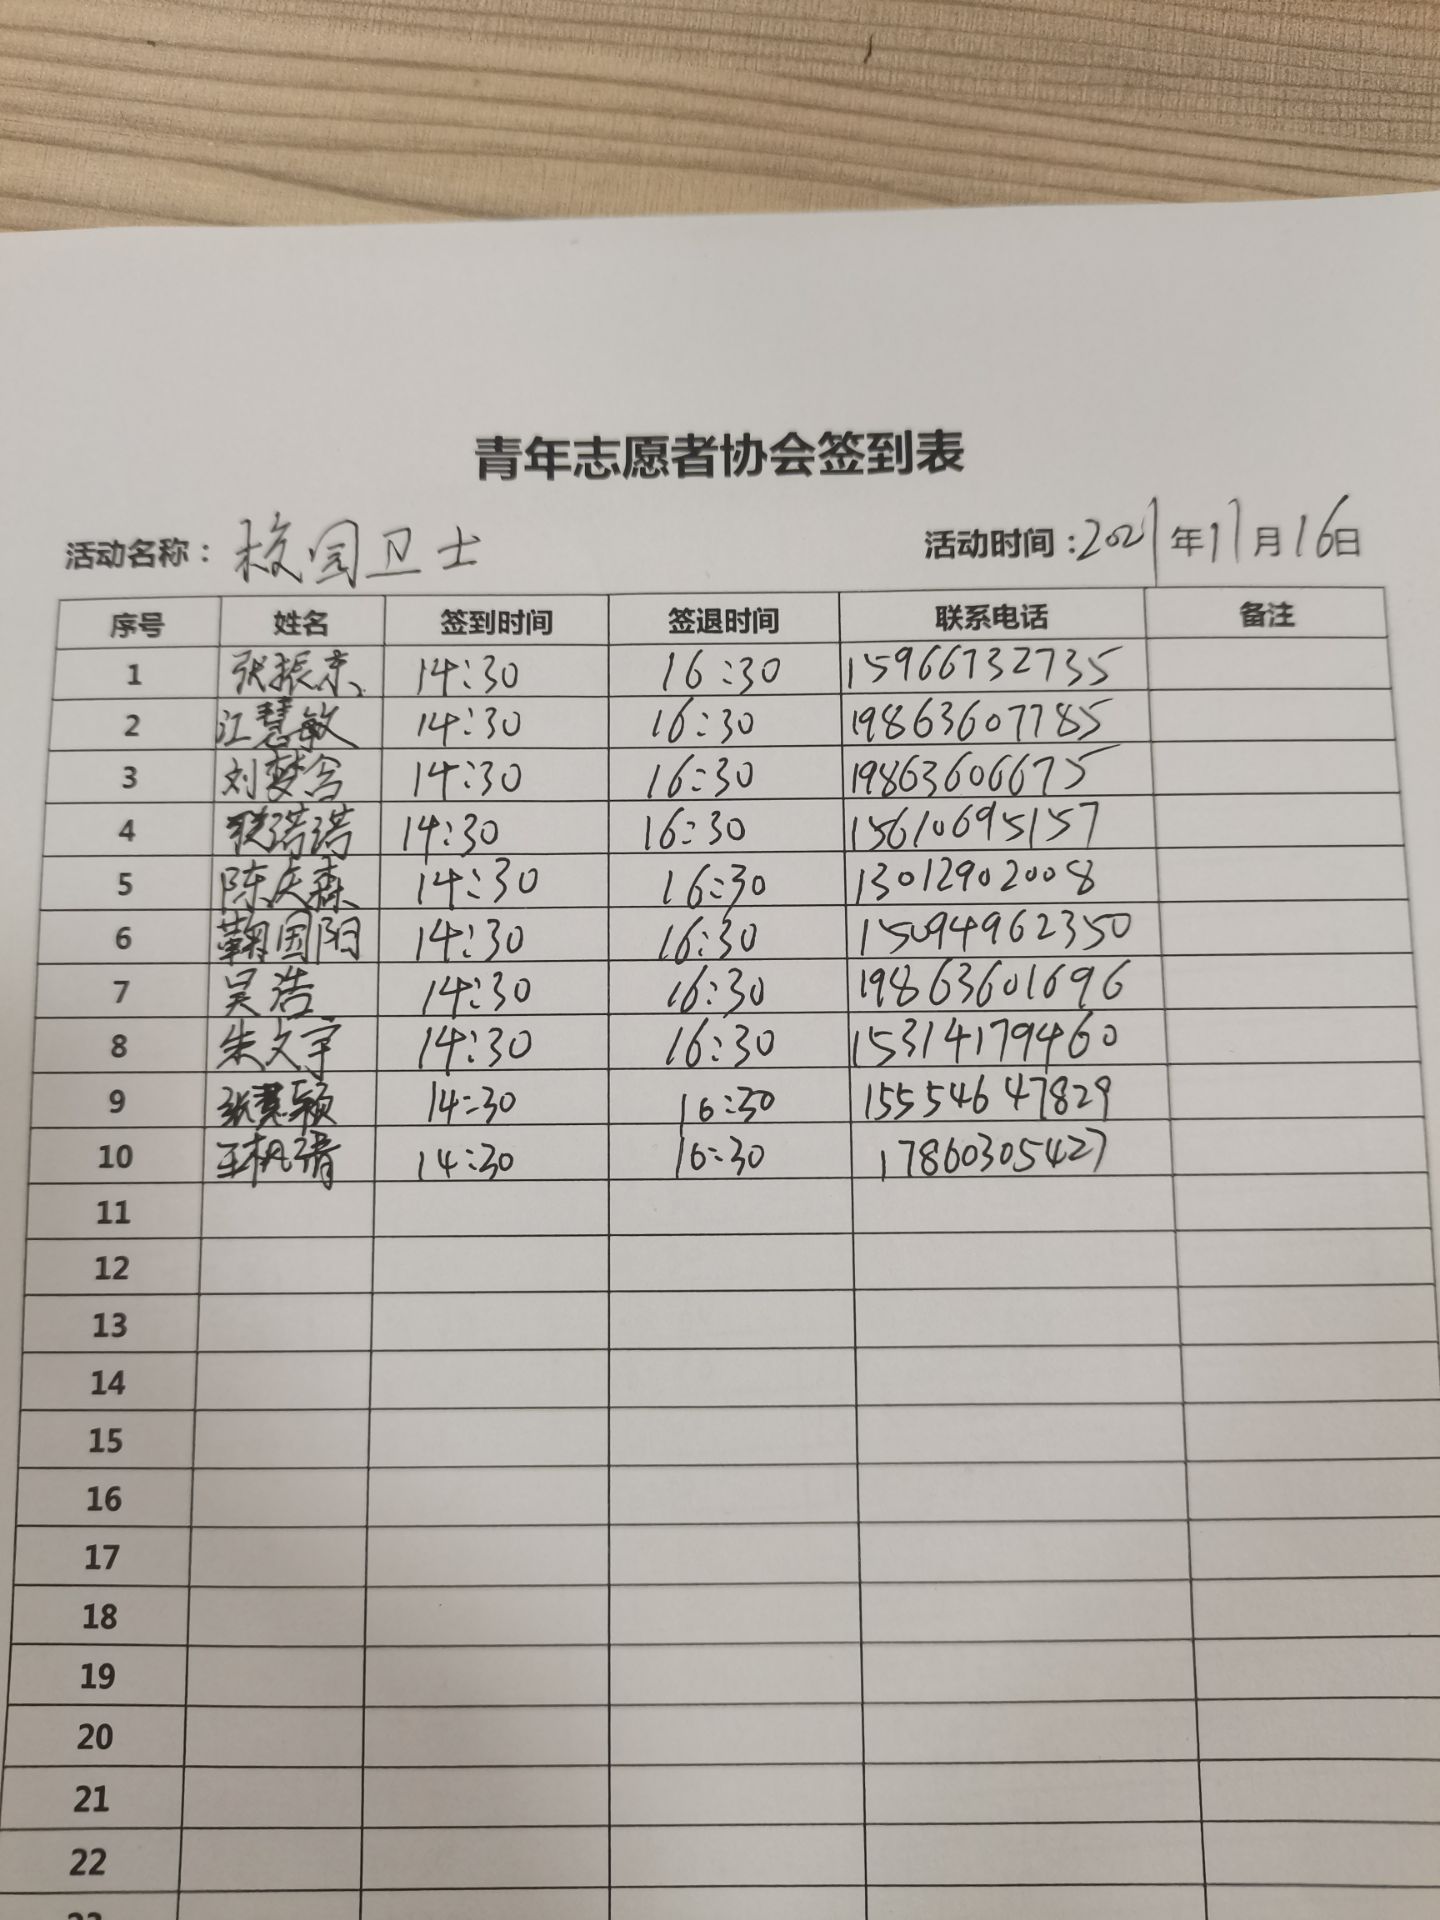 青年志愿者协会签到表
活动名称：校园卫士 活动时间：2021年11月16日
序号 姓名 签到时间 签退时间 联系电话 备注
1 张振东 14:30 16:30 15966732735
2 江慧敏 14:30 16:30 19863607785
3 刘梦含 14:30 16:30 19863606675
4 14:30 16:30 15610695157
5 陈庆森 14:30 16:30 13012902008
6 鞠国阳 14:30 16:30 15094962350
7 吴浩 14:30 16:30 19863601696
8 朱文宇 14:30 16:30 15314179460
9 张慧颖 14:30 16:30 15554647829
10 14:30 16:30 17860305427
11
12
13
14
15
16
17
18
19
20
21
22
23